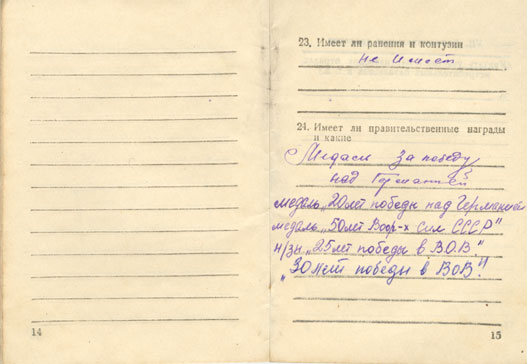 14
23. Имеет ли ранения и контузии
не имеет
24. Имеет ли правительственные награды
и какие
Медаль За победу
над Германией
медаль „20 лет победы над Германией
медаль „50 лет Воор-х Сил СССР"
н/зн „25 лет победы в В.О.В."
„30 лет победы в ВОВ."
15